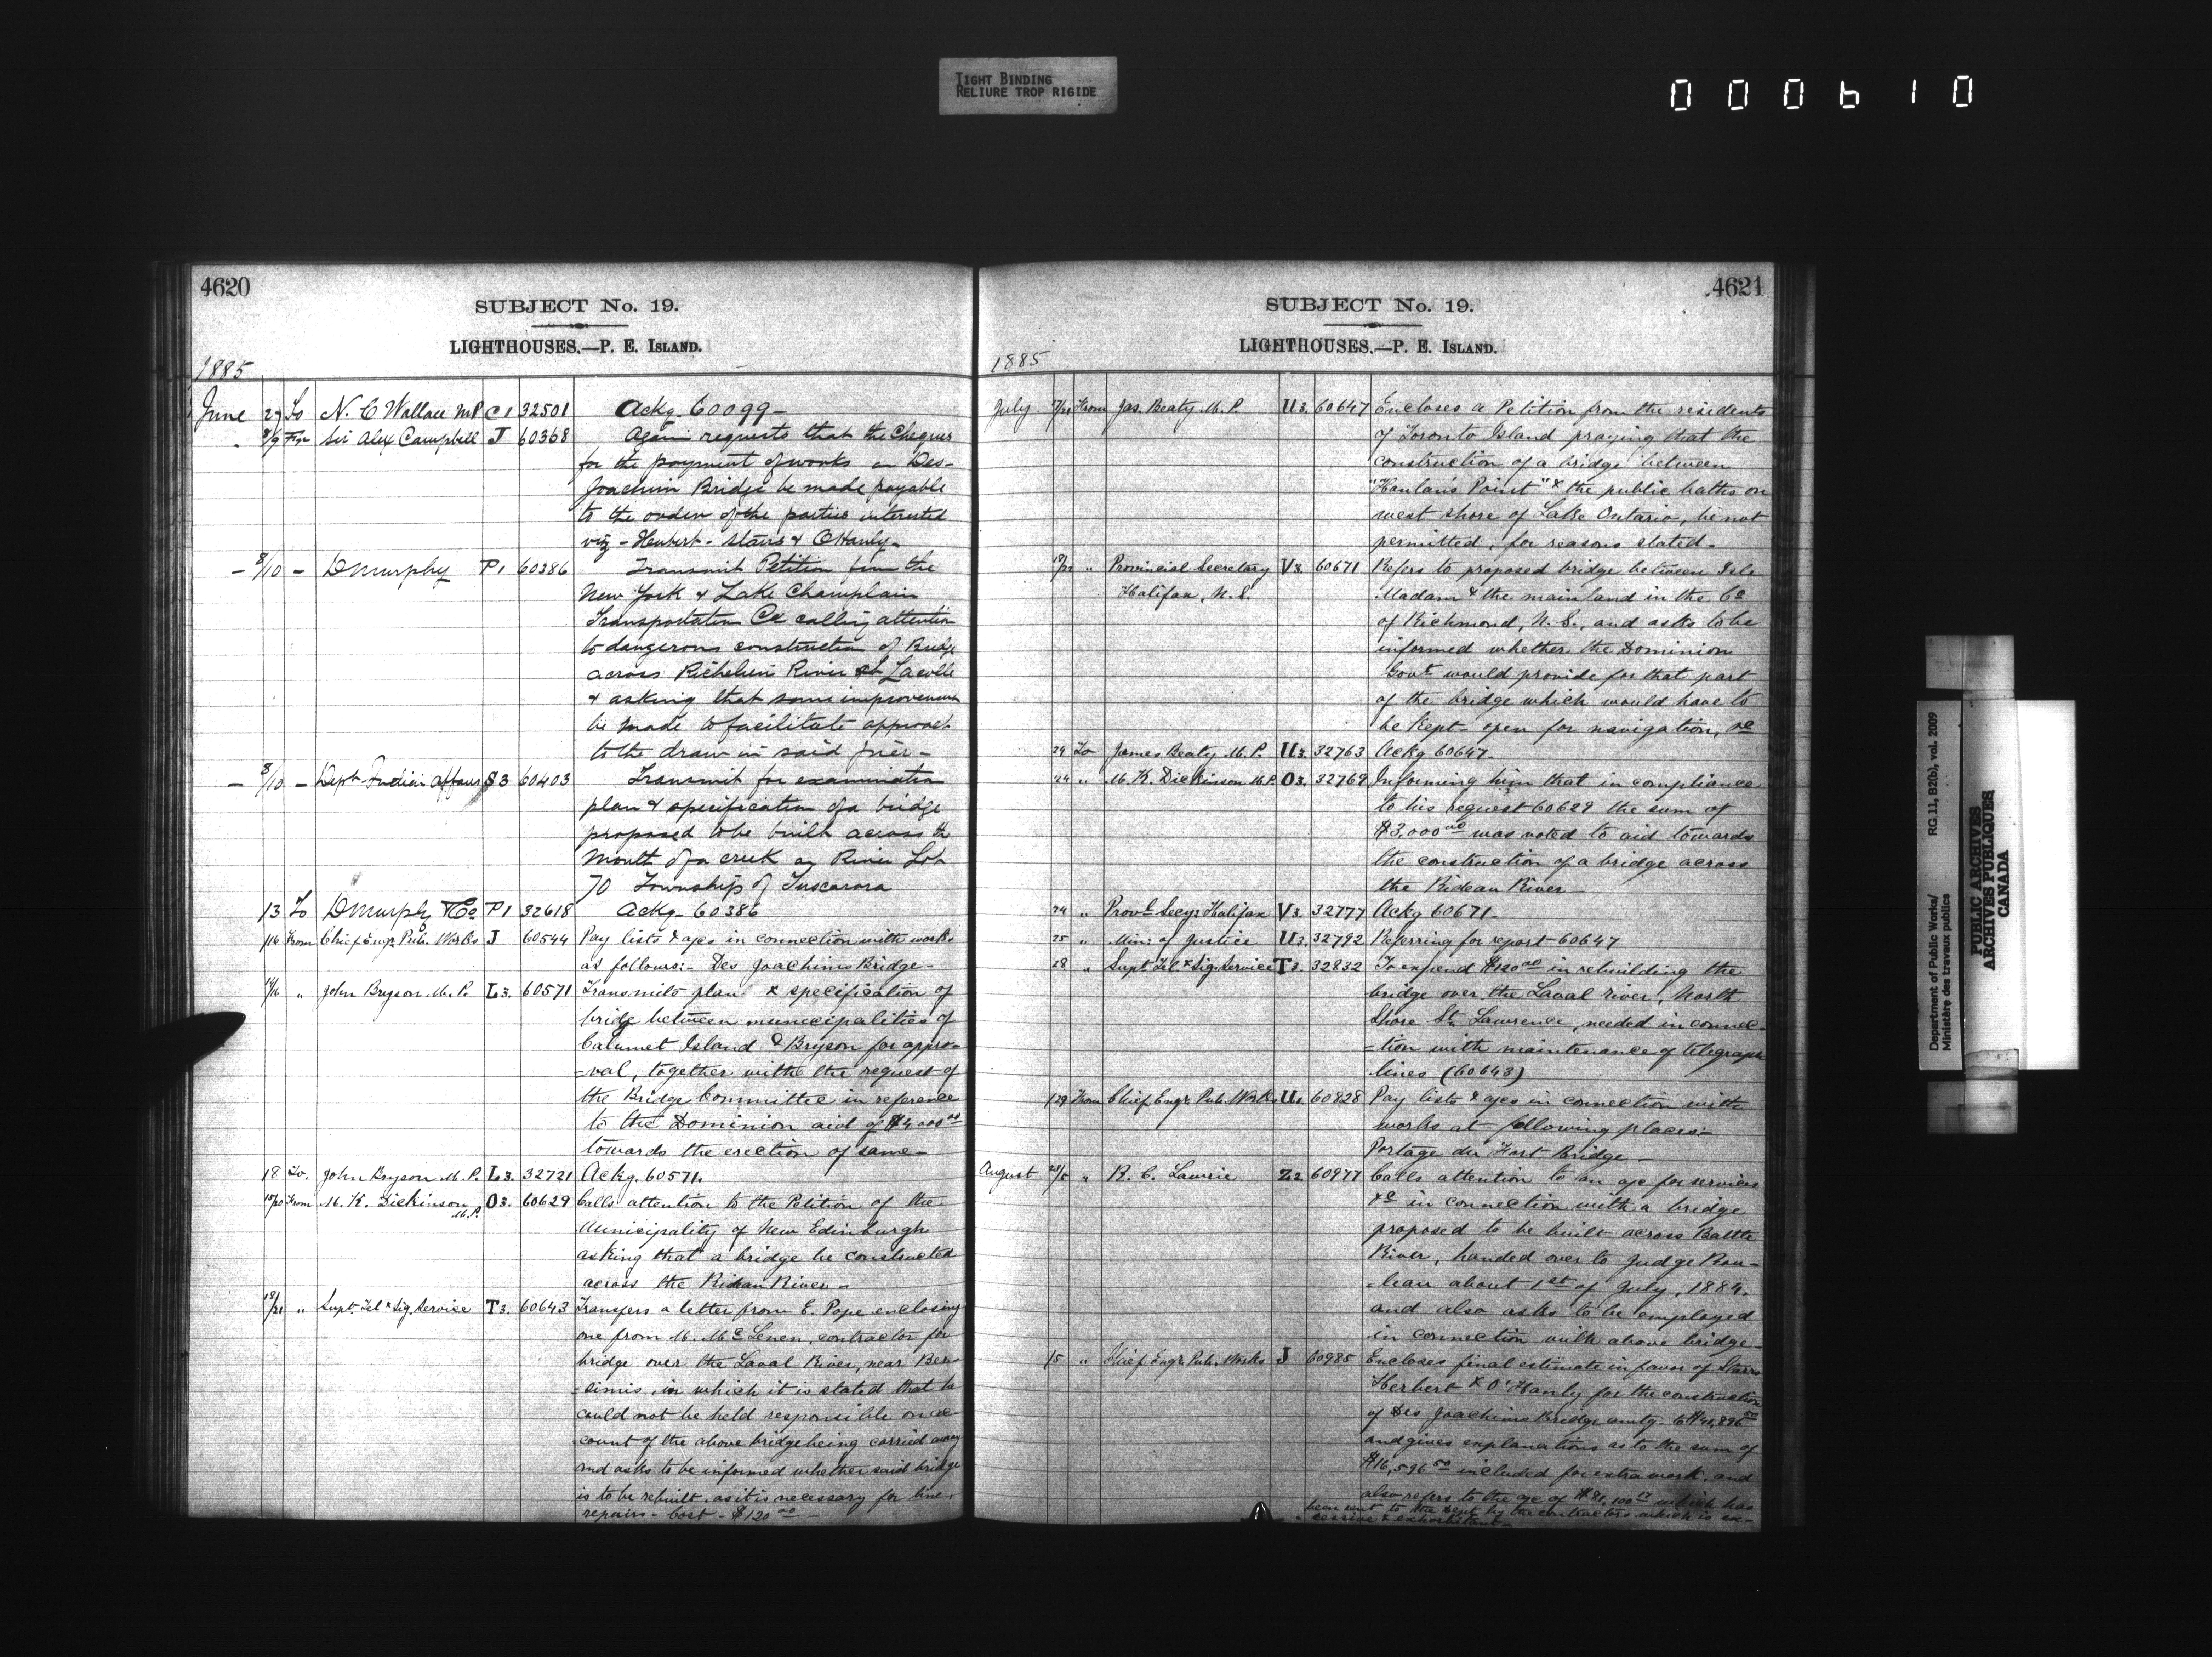 TIGHT BINDING
RELIURE TROP RIGIDE
000610
4620
SUBJECT No. 19.
LIGHTHOUSES.—P. E. ISLAND.
1885
June 27 To N. C Wallace MP C1 32501 Ackg. 60099-
8/9 Fm Sir Alex Campbell J 60368 Again requests that the Cheques
for the payment of works on Des-
Joachim Bridge be made payable
to the order of the parties interested
viz - Herbert - Stairs & O'Hanly-
- 8/10 - D Murphy P1 60386 Transmit Petition from the
New York & Lake Champlain
Transportation Co calling attention
to dangerous construction of Bridge
across Richelieu River at Lacolle
& asking that some improvement
be made to facilitate approach
to the draw in said pier-
- 8/10 - Dept Indian Affairs S3 60403 Transmit for examination
plan & specification of a bridge
proposed to be built across the
Mouth of a creek on River Lot
70 Township of Tuscarora
13 To D Murphy & Co P1 32618 Ackg- 60386
/16 From Chief Engr. Pub. Works J 60544 Pay lists & a/cs in connection with works
as follows:- Des Joachims Bridge-
14/16 " John Bryson M.P. L3. 60571 Transmits plan & specification of
bridge between municipalities of
Calumet Island & Bryson for appro=
=val, together with the request of
the Bridge Committee in reference
to the Dominion aid of $4,000 00
towards the erection of same-
18 To. John Bryson M.P. L3. 32721 Ackg. 60571.
18/20 From M. K. Dickinson M.P. O3. 60629 Calls attention to the Petition of the
Municipality of New Edinburgh
asking that a bridge be constructed
across the Rideau River-
18/21 " Supt. Tel & Sig. Service T3. 60643 Transfers a letter from E. Pope enclosing
one from M. McLenen, contractor for
bridge over the Laval River, near Ber-
-simis, in which it is stated that he
could not be held responsible on ac-
count of the above bridge being carried away
and asks to be informed whether said bridge
is to be rebuilt, as it is necessary for line
repairs - Cost - $120 00 -
4621
SUBJECT No. 19.
LIGHTHOUSES.—P. E. ISLAND.
1885
July 17/21 From Jas. Beaty M.P. U3. 60647 Encloses a Petition from the residents
of Toronto Island praying that the
construction of a bridge between
"Hanlan's Point" & the public baths on
west shore of Lake Ontario, be not
permitted, for reasons stated-
" Provincial Secretary V3. 60671 Refers to proposed bridge between Isle
Halifax, N.S. Madam & the mainland in the Co
of Richmond, N.S., and asks to be
informed whether the Dominion
Govt would provide for that part
of the bridge which would have to
be kept open for navigation, &c
24 To James Beaty M.P. U3. 32763 Ackg 60647.
24 " M. K. Dickinson M.P. O3. 32769 Informing him that in compliance
to his request 60629 the sum of
$3,000 00 was voted to aid towards
the construction of a bridge across
the Rideau River-
24 " Provl Secy. Halifax V3. 32777 Ackg 60671-
25 " Minr of Justice U3. 32792 Referring for report 60647
28 " Supt. Tel & Sig. Service T3. 32832 To expend $120 00 in rebuilding the
bridge over the Laval river, North
Shore St. Lawrence, needed in connec-
=tion with maintenance of telegraph
lines (60643)
/29 From Chief Engr. Pub. Works U1. 60828 Pay lists & a/cs in connection with
works at following places:-
Portage du Fort Bridge-
August 28/5 " R. C. Lawrie Z2. 60977 Calls attention to an a/c for services
&c in connection with a bridge
proposed to be built across Battle
River, handed over to Judge Rou-
-leau about 1st of July, 1884.
and also asks to be employed
in connection with above bridge-
/5 " Chief Engr. Pub. Works J 60985 Encloses final estimate in favor of Starrs
Herbert & O'Hanly for the construction
of Des Joachims Bridge amtg. to
and gives explanations as to the sum of
$16,596 50 included for extra work, and
also refers to the a/c of $81,100 17 which has
been sent to the Dept by the contractors which is ex-
cessive & exhorbitant-
Department of Public Works/ RG 11, B2(b), vol. 2009
Ministère des travaux publics
PUBLIC ARCHIVES
ARCHIVES PUBLIQUES
CANADA